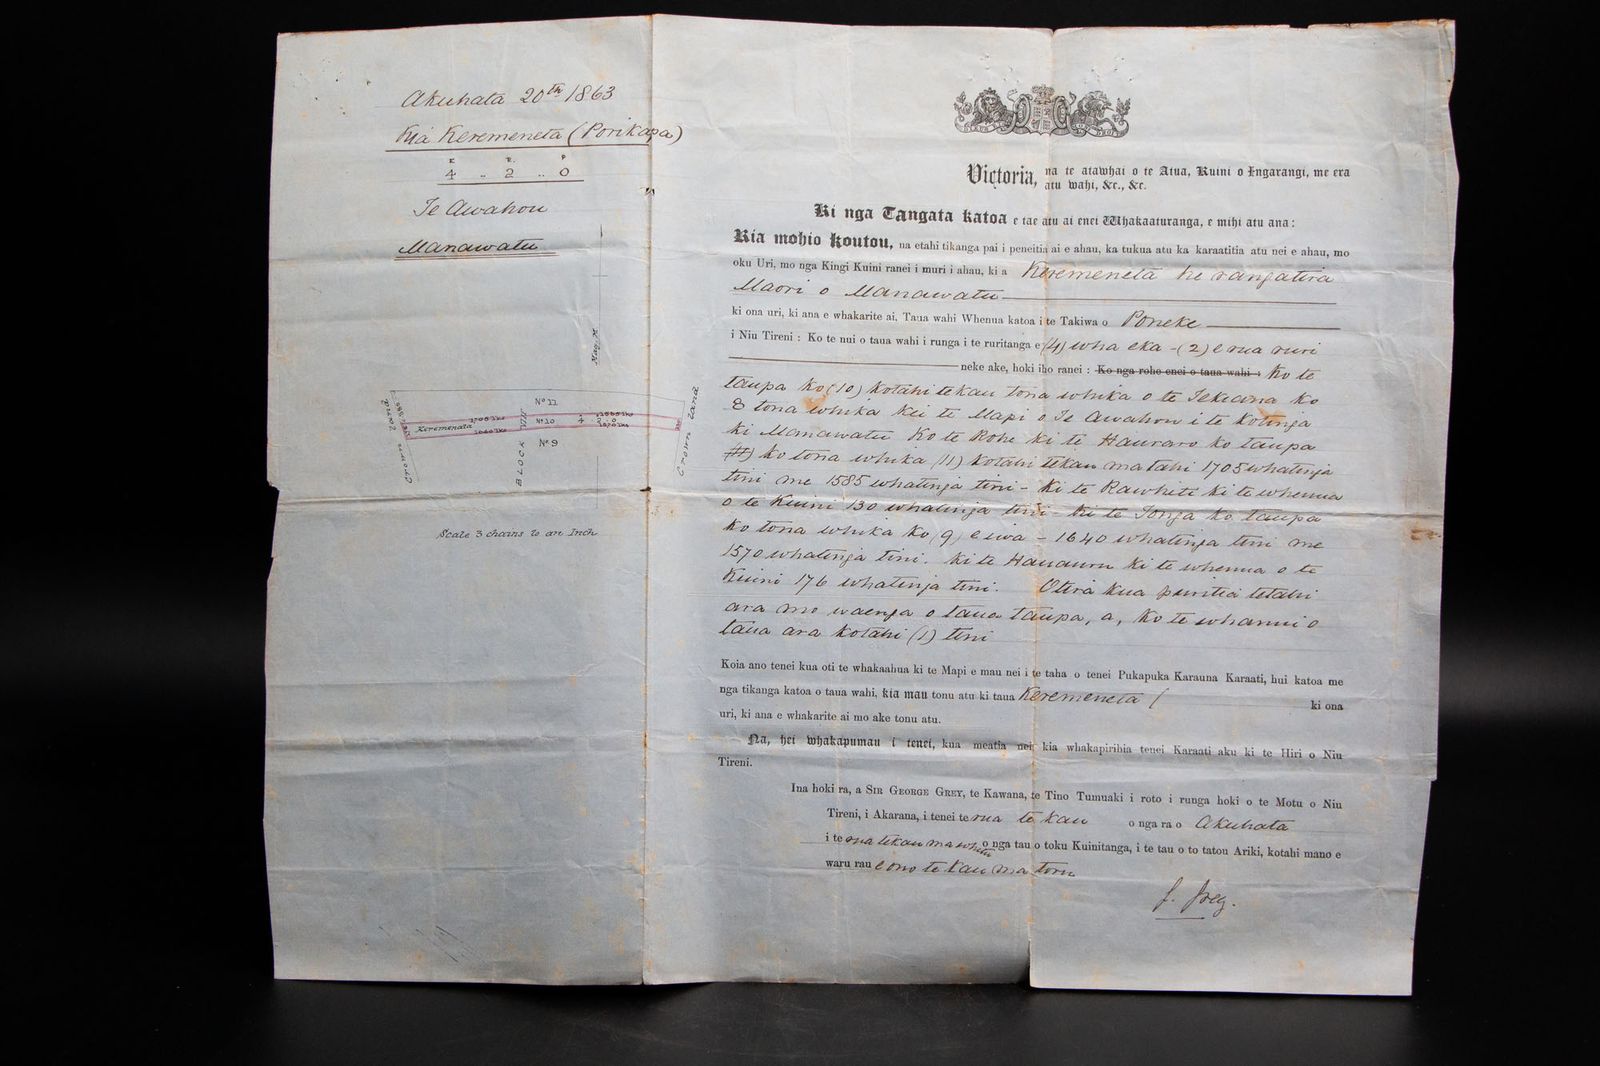 Akuhata 20th 1863
Kia Keremeneta (Porikapa)
R. P
4 .. 2 .. 0
Te Awahou
Manawatu
Mag. N
Crown Land
Keremeneta
1705 lks
1640 lks
BLOCK VIII
No 11
No 10
No 9
4 . 2 . 0
1585 lks
1570 lks
Crown Land
Scale 3 chains to an Inch
Victoria, na te atawhai o te Atua, Kuini o Ingarangi, me era
atu wahi, &c., &c.
Ki nga Tangata katoa e tae atu ai enei Whakaaturanga, e mihi atu ana:
Kia mohio koutou, na etahi tikanga pai i peneitia ai e ahau, ka tukua atu ka karaatitia atu nei e ahau, mo
oku Uri, mo nga Kingi Kuini ranei i muri i ahau, ki a Keremeneta he rangatira
Maori o Manawatu
ki ona uri, ki ana e whakarite ai, Taua wahi Whenua katoa i te Takiwa o Poneke
i Niu Tireni: Ko te nui o taua wahi i runga i te ruritanga e (4) wha eka - (2) e rua ruri
neke ake, hoki iho ranei: Ko nga rohe enei o taua wahi: Ko te
taupa ko (10) kotahi tekau tona whika o te Tekiona ko
8 tona whika kei te Mapi o Te Awahou i te kotinga
ki Manawatu Ko te Rohe ki te Hauraro ko taupa
ko tona whika (11) kotahi tekau ma tahi 1705 whatinga
tini me 1585 whatinga tini - ki te Rawhiti ki te whenua
o te Kuini 130 whatinga tini - ki te Tonga ko taupa
ko tona whika ko (9) e iwa - 1640 whatinga tini me
1570 whatinga tini. ki te Hauauru ki te whenua o te
Kuini 176 whatinga tini. Otira kua puritia tetahi
ara mo waenga o taua taupa, a, ko te whanui o
taua ara kotahi (1) tini
Koia ano tenei kua oti te whakaahua ki te Mapi e mau nei i te taha o tenei Pukapuka Karauna Karaati, hui katoa me
nga tikanga katoa o taua wahi, kia mau tonu atu ki taua Keremeneta ki ona
uri, ki ana e whakarite ai mo ake tonu atu.
Na, hei whakapumau i tenei, kua meatia nei kia whakapiribia tenei Karaati aku ki te Hiri o Niu
Tireni.
Ina hoki ra, a Sir George Grey, te Kawana, te Tino Tumuaki i roto i runga hoki o te Motu o Niu
Tireni, i Akarana, i tenei te rua te kau o nga ra o Akuhata
i te rua tekau ma whitu o nga tau o toku Kuinitanga, i te tau o to tatou Ariki, kotahi mano e
waru rau e ono te kau ma toru
G. Grey.